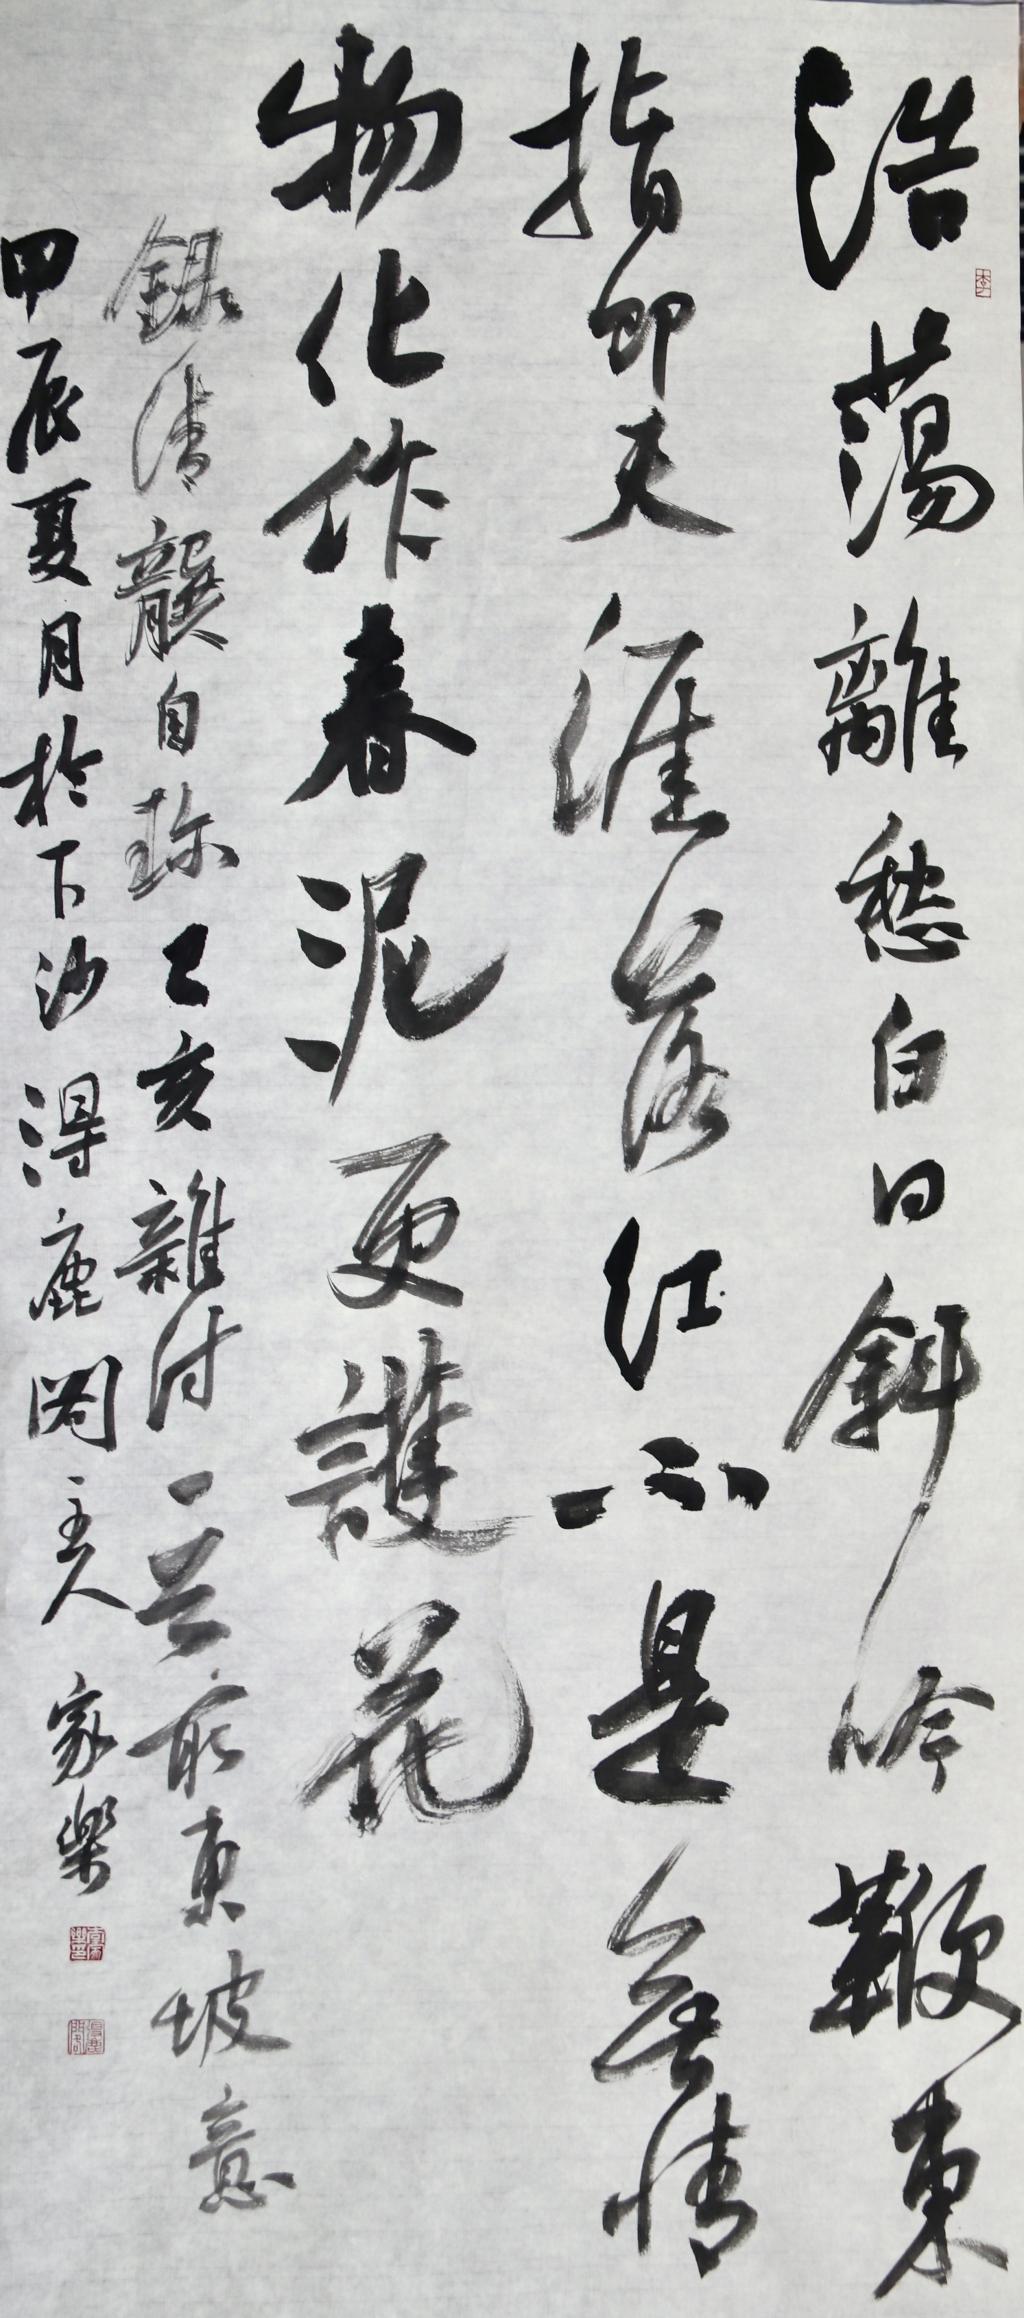 浩蕩離愁白日斜吟鞭東
指即天涯落紅不是無情
物化作春泥更護花
錄清龔自珍己亥雜詩一首取東坡意
甲辰夏月於下沙得鹿閣主人家樂
李